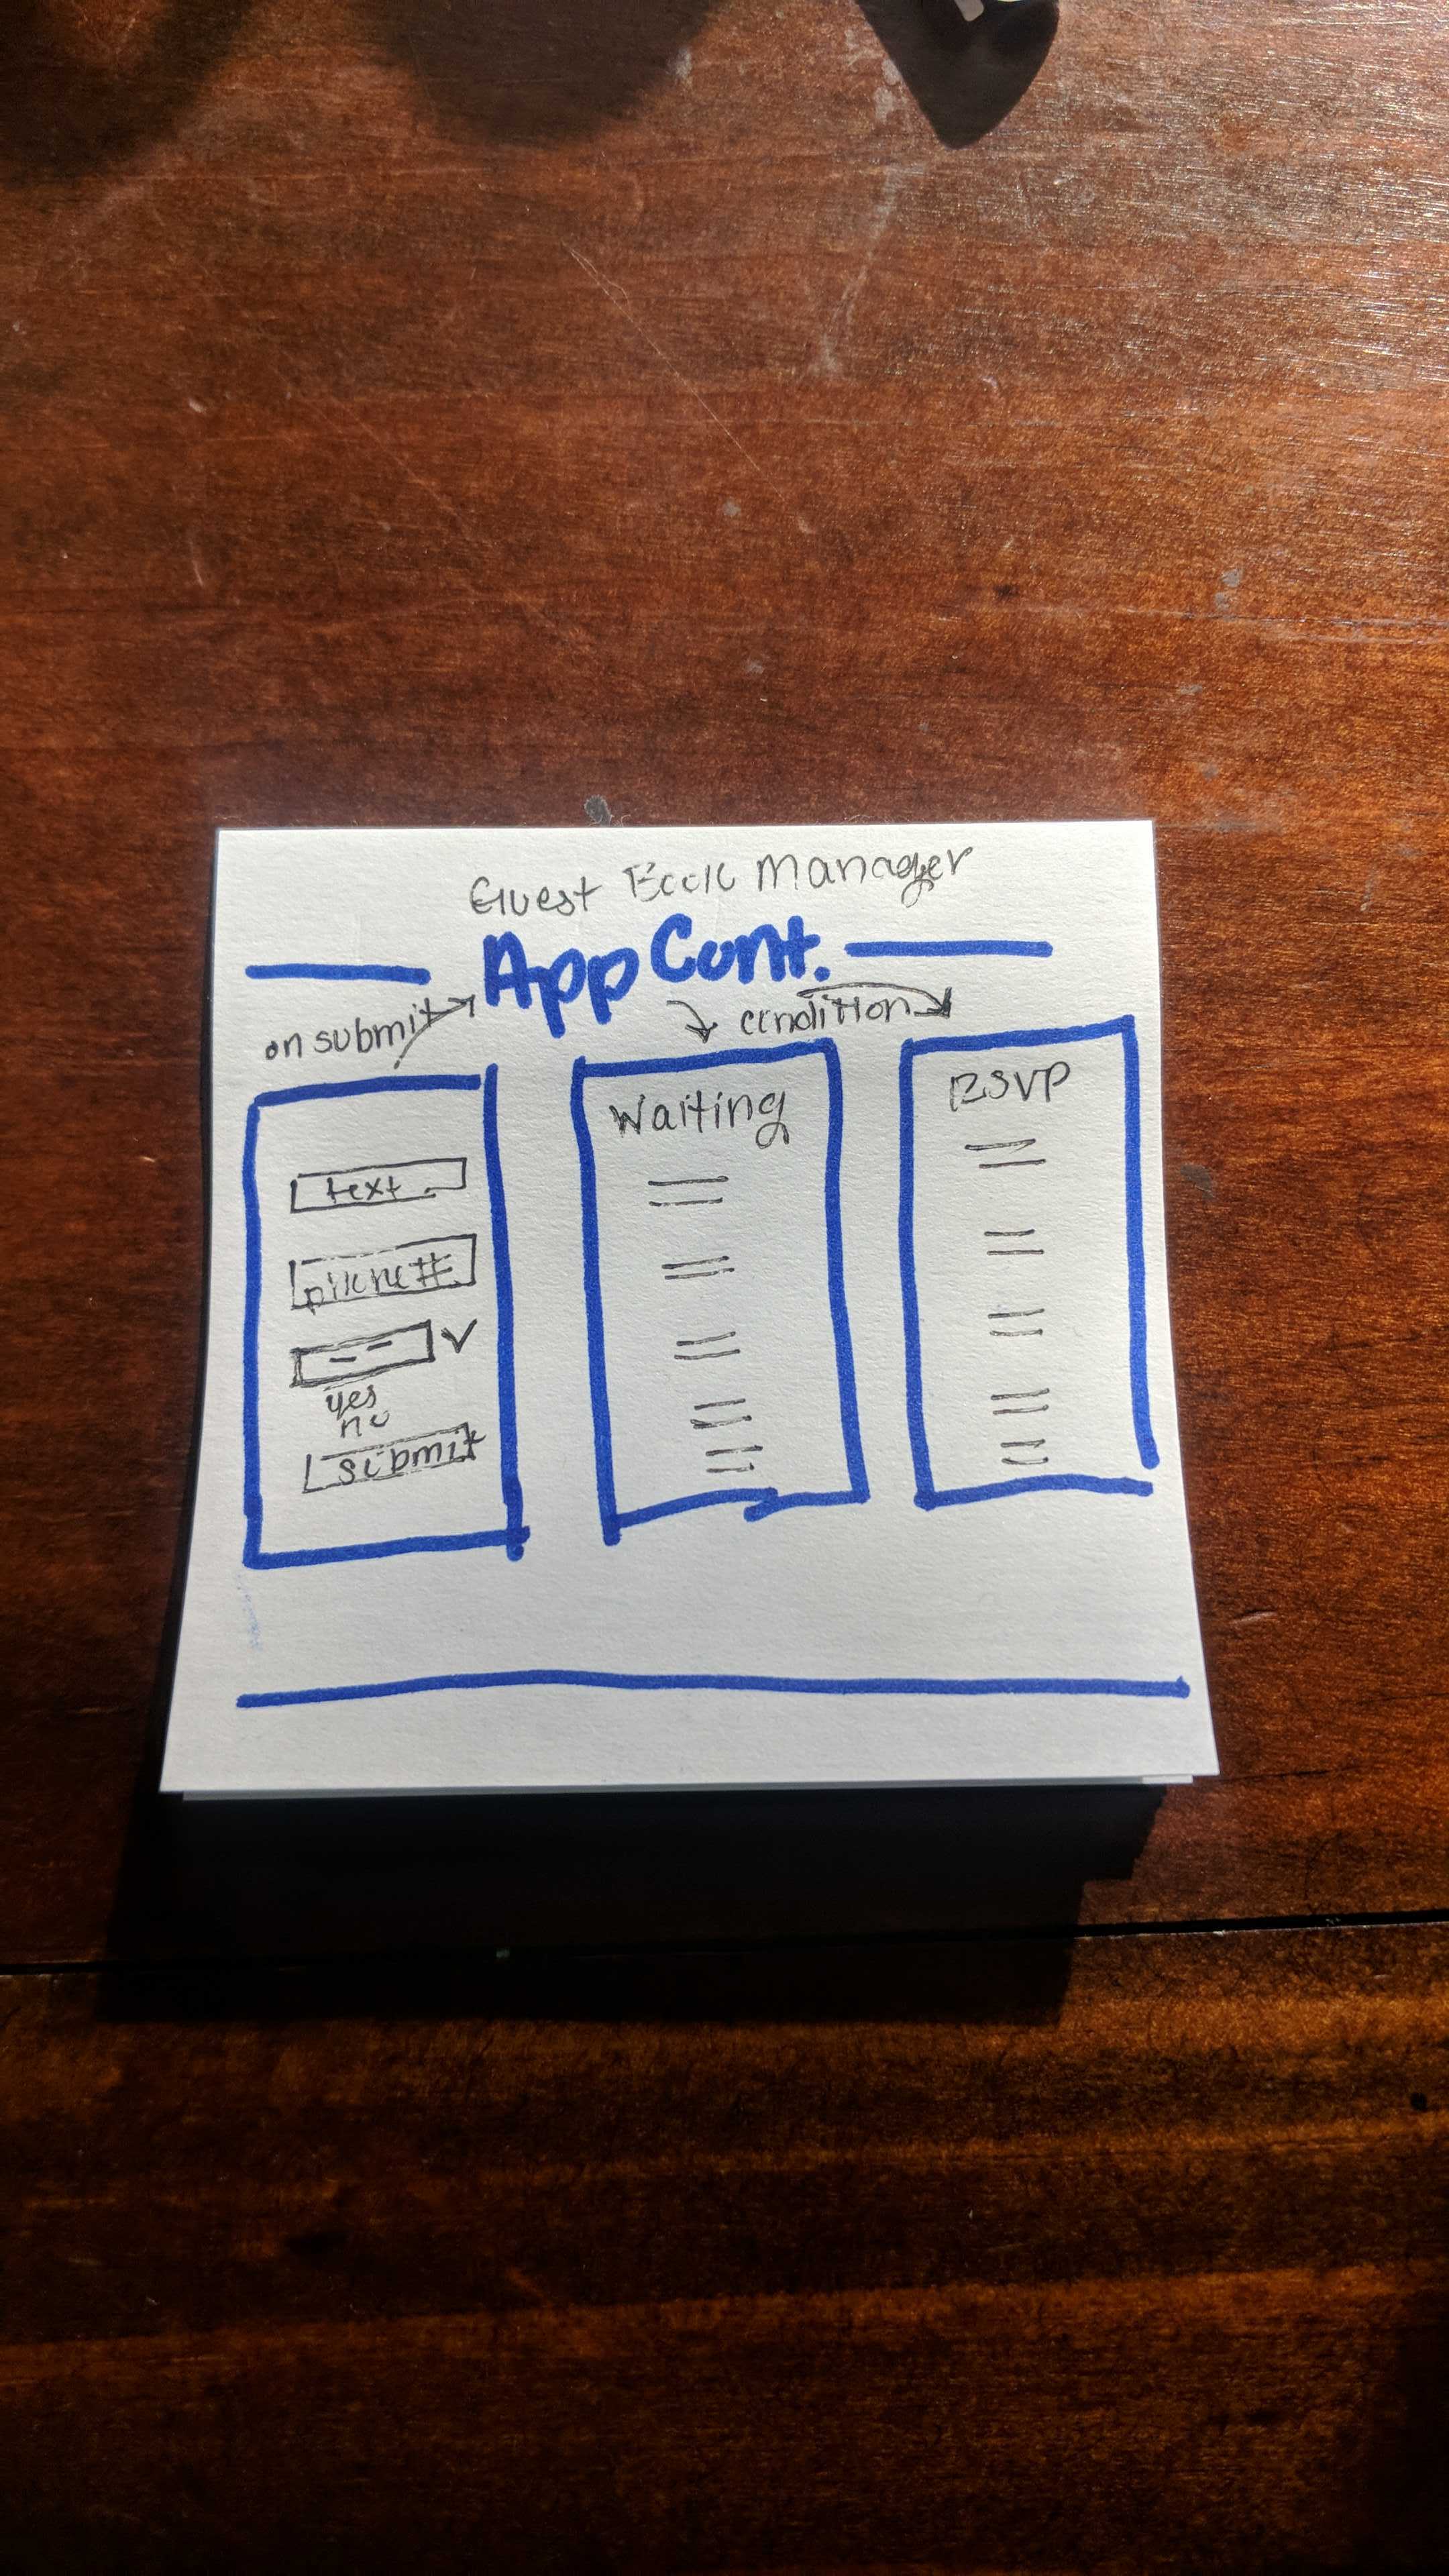 Guest Book Manager
App Cont.
on submit
condition
text
phone #
yes
no
submit
Waiting
RSVP